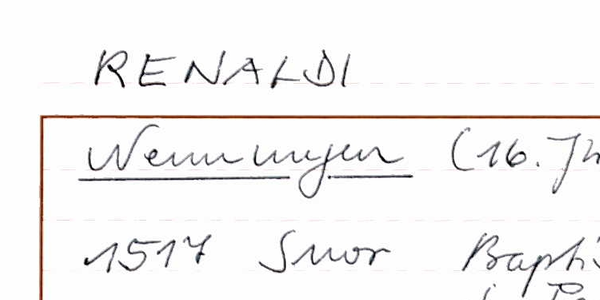 RENALDI
Nenningen (16. Jh
1517 Snor Bapti